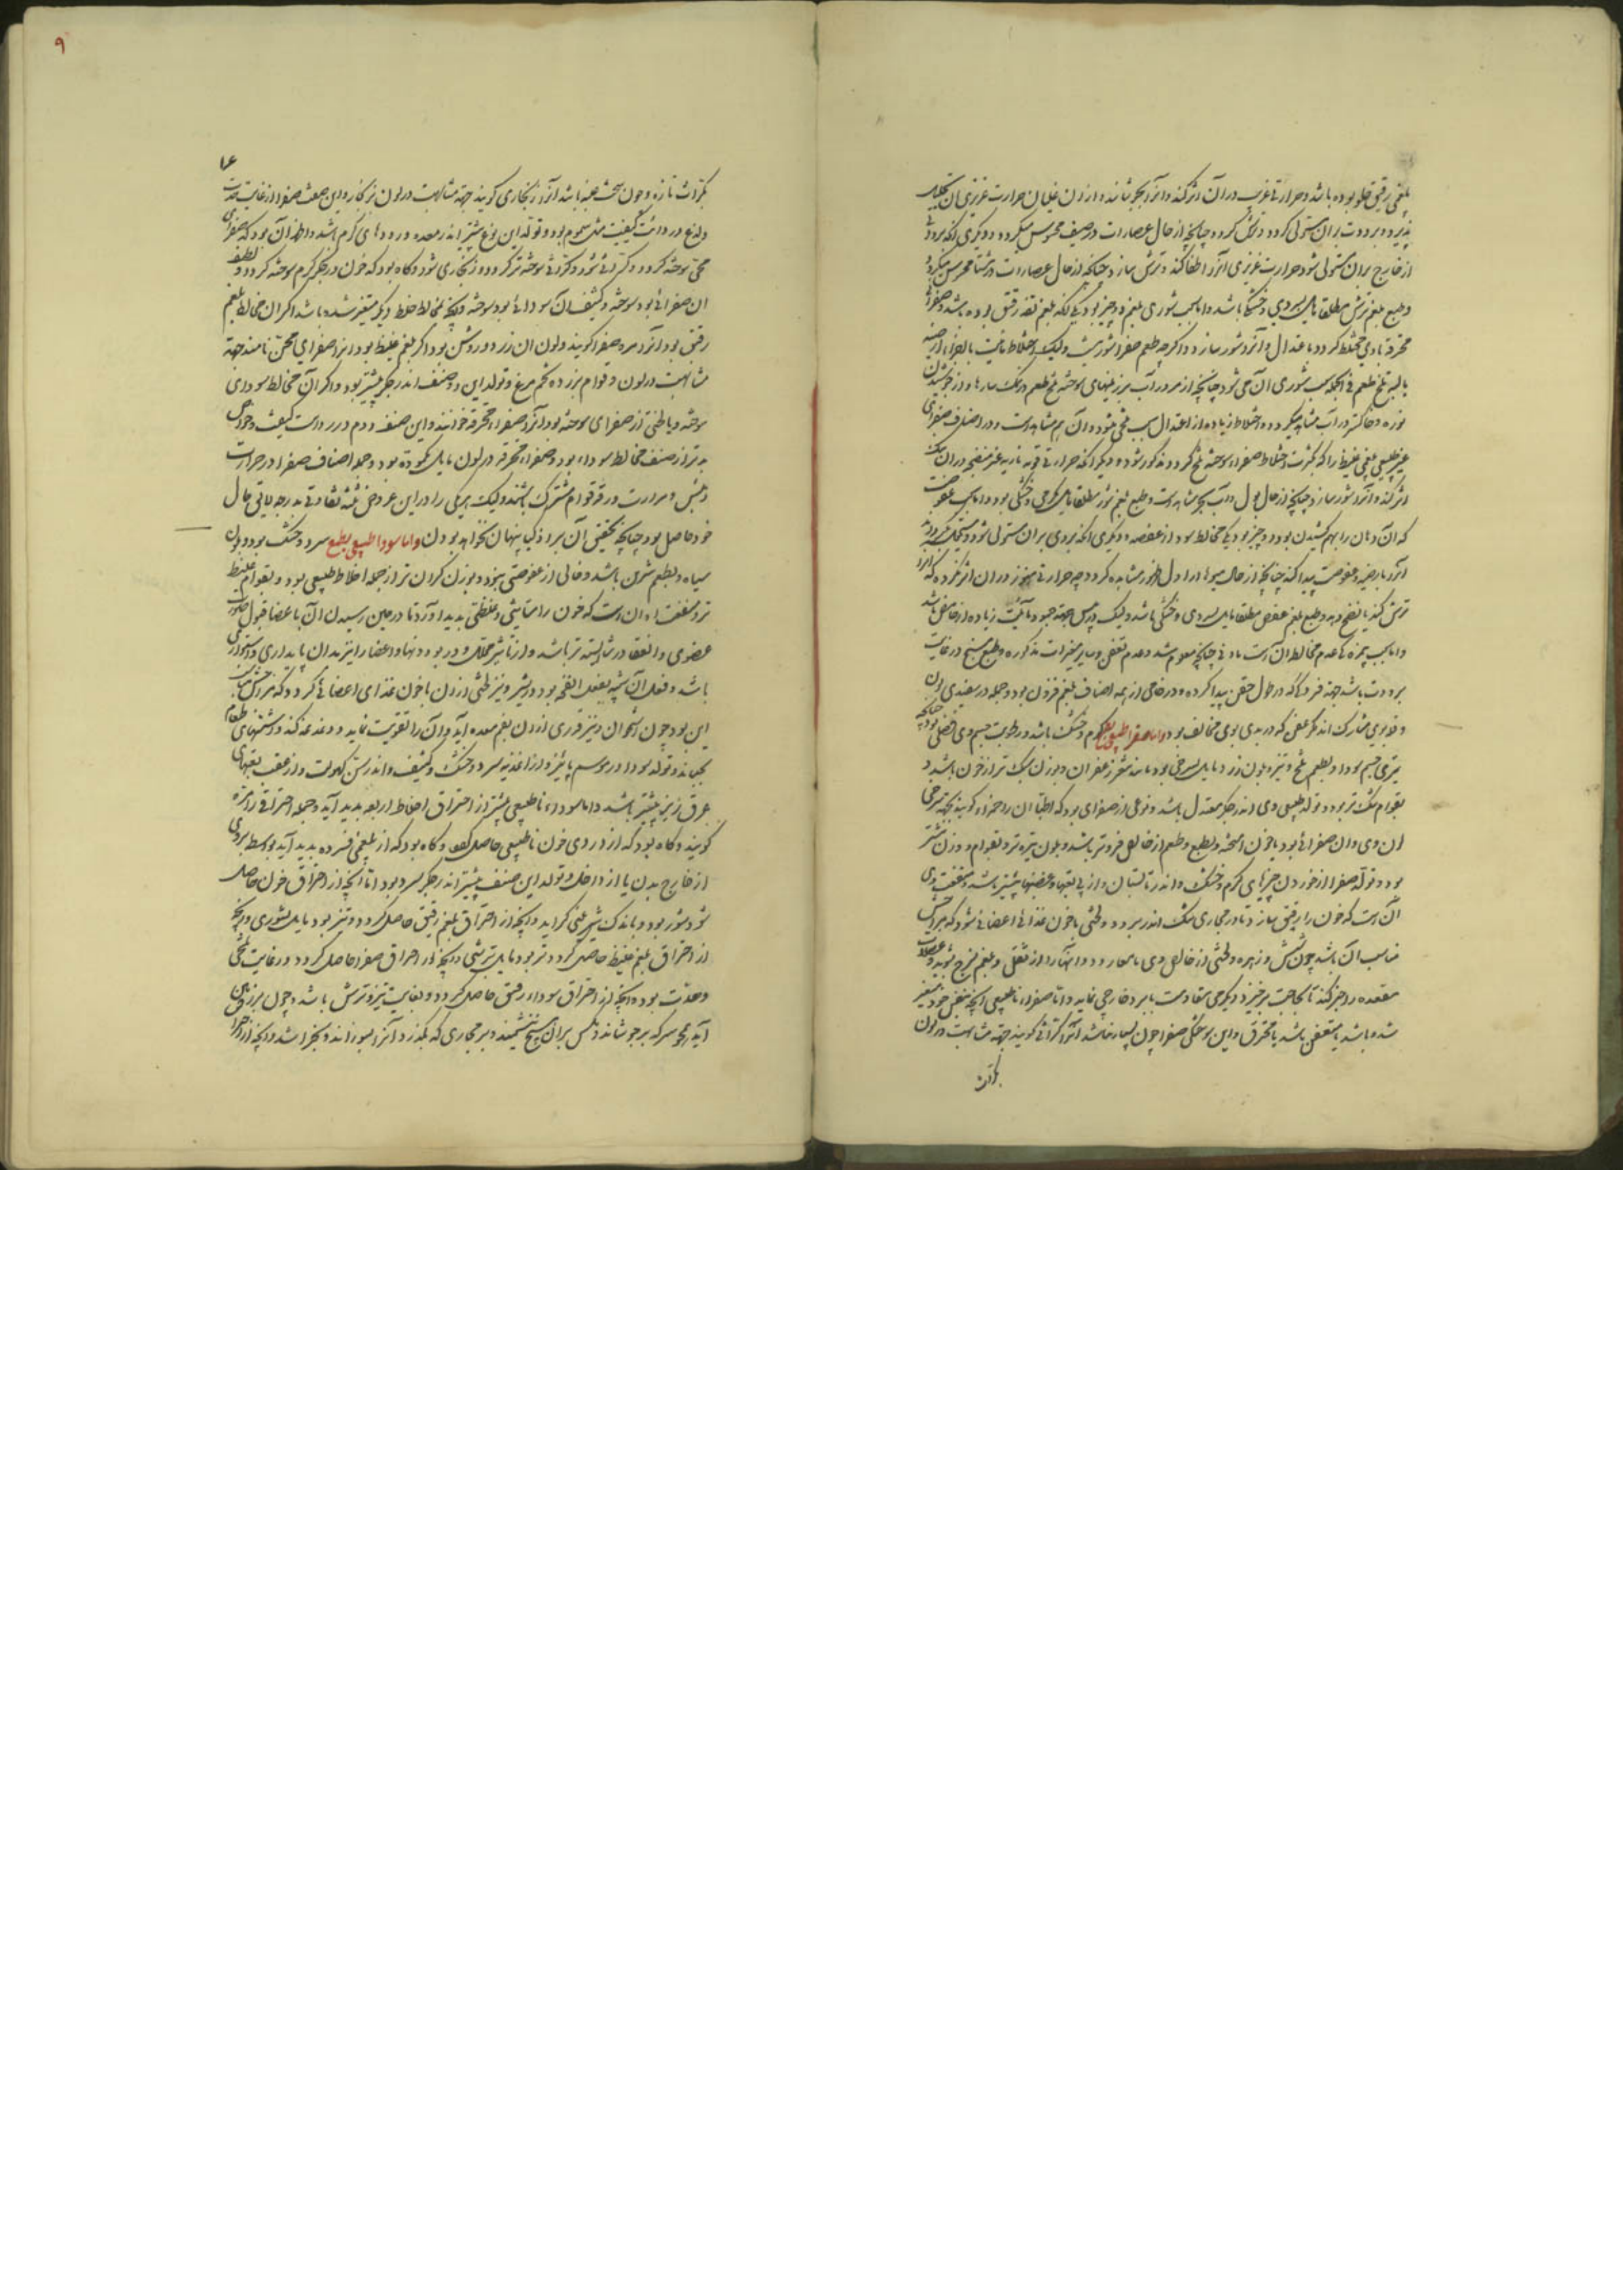 بلغمی رقیق حلو بوده باشد و حرارتی غریب در آن اثر کند و آنرا بجوشاند و از آن غلیان حرارت غریزی آن تحلیل
پذیرد و برودت بر آن مستولی کردد و ترش کردد چنانچه از حال عصارات در صیف محسوس میکردد و دیکری آنکه برودتی
از خارج بر آن مستولی شود حرارت غریزی آنرا اطفا کند و ترش سازد چنانکه از حال عصارات در شتا محسوس میکردد
و طبع بلغم ترش مطلقا مایل بسردی و خشکی باشد و اما سبب شوری بلغم دو چیز بود یکی آنکه بلغم تفه رقیق بوده باشد و صفرای
محترقه با وی مختلط کردد باعتدال و آنرا شور سازد و اکرچه طعم صفرا شور نیست ولیکن اختلاط مائیت با اجزاء ارضیه
یابسه تلخ طعم فی الجمله سبب شوری آن می شود چنانچه از مرور آب بر زمینهای سوخته تلخ طعم و نمک سازها و از جوشیدن
نوره و خاکستر در آب مشاهد میکردد و اختلاط زیاده از اعتدال سبب تلخی میشود و آن هم مشاهد است و در اصناف صفرای
غیر طبیعی بلغمی غلیظ را که بکثرت اختلاط صفراء سوخته تلخ کردد مذکور شود و دیکر آنکه حرارتی قویه ناریه غیر منضج در آن
اثر کند و آنرا شور سازد چنانچه از حال بول و آب بحر مشاهد است و طبع بلغم شور مطلقا مایل بکرمی و خشکی بود و اما سبب عفوصت
که آن دهان را بهم کشیدن بود دو چیز بود یکی مخالط سوداء عفصه و دیکری آنکه بردی بر آن مستولی شود
آنرا بارضیه و عفوصت پیدا کند چنانچه از حال میوها در اول ظهور مشاهده کردد چه حرارتی هنوز در آن اثر نکرده که آنرا
ترش کند یا نضج دهد و طبع بلغم عفص مطلقا مایل بسردی و خشکی باشد ولیکن
و اما سبب بیمزه کی عدم مخالط آنست با وی چنانچه معلوم شد و عدم تعفن و سایر مغیرات مذکوره و طبع مسیخ در غایت
برودت باشد جهة
و در بوی مشارک اند مکر عفن که در بدی بوی مخالف بود و اما صفراء طبیعی بطبع کرم و خشک باشد
و بطعم تلخ و تیز و بلون زرد مایل بسرخی بود مانند شعر زعفران و بوزن سبک تر از خون باشد و
بقوام تنک تر بود و تولد طبیعی وی اندر جکر معتدل باشد و نوعی از صفرای بود که اطبا آن را حمراء کویند بجهة سرخی
آن وی و آن صفرائی بود با خون آمیخته و بطبع و طعم از خالص فروتر باشد و بلون تیره تر و بقوام و وزن بیشتر
بود و تولد صفرا از خوردن چیزهای کرم و خشک و اندر تابستان و از پی تعبها و غضبها بیشتر باشد و منفعت وی
آن است که خون را رقیق سازد تا در مجاری تنک اندر رود و لختی با خون غذای اعضائی شود که مزاجش
مناسب آن باشد چون شش و زهره و لختی از خالص وی بامعا رود و آنها را از ثفل و بلغم لزج بشوید و عضلات
مقعده را خبر کند تا بحاجت برخیزد و دیکر می مقاومت با برد خارجی نماید و اما صفراء ناطبیعی آنچه بنفس خود متغیر
شده باشد یا متعفن باشد یا محترق و این سوختکی صفرا چون بسیار نباشد آنرا کراثی کویند جهة مشابهت در لون
بکراث
۹
بکراث تازه و چون سخت بغایت باشد آنرا زنجاری کویند جهة مشابهت در لون بزنکار و این صنف صفرا از غایت حدت
و لذع و ردائت کیفیت مثل سموم بود و تولد این نوع بیشتر اندر معده و رودهای کرم باشد و اظهر آن بود که صفرای
محی سوخته کردد و کراثی شود و کراثی سوخته تر کردد و زنجاری شود و کاه بود که خون در جکر کرم سوخته کردد و لطیف
آن صفرائی بود سوخته و کثیف آن سودائی بود سوخته و آنچه بمخالط خلط دیکر متغیر شده باشد اکر آن مخالط بلغم
رقیق بود آنرا مره صفرا کویند و لون آن زرد و روشن بود و اکر بلغم غلیظ بود آنرا صفرای محی نامند جهة
مشابهت در لون و قوام بزرده تخم مرغ و تولد این دو صنف اندر جکر بیشتر بود و اکر آن مخالط سودای
سوخته و یا لختی از صفرای سوخته بود آنرا صفراء محترقه خوانند و این صنف دوم در ردائت کیفیت و خواص
بدتر از صنف مخالط سوداء بود و صفراء محترقه در لون مایل بکمودة بود و جمله اصناف صفرا در حرارت
و یبس و مرارت و رقة قوام مشترک باشند ولیکن هر یکی را در این عروض ثلثه تفاوتی بدرجه لایق حال
خود حاصل بود چنانچه تحقیق آن بر اذکیا پنهان نخواهد بودن و اما سوداء طبیعی بطبع سرد و خشک بود و بلون
سیاه و بطعم شرین باشد و خالی از عفوصتی نبود و بوزن کران تر از جمله اخلاط طبیعی بود و بقوام غلیظ
تر و منفعت او آن است که خون را متانتی و غلظتی بدید آورد تا در حین رسیدن آن باعضا قبول صورت
عضوی و انعقاد را شایسته تر باشد
باشد و فعل آن شبیه بفعل انفحه بود در شیر و نیز لختی از آن با خون غذای اعضائی کردد که مزاجش مناسب
این بود چون استخوان و نیز قدری از آن بفم معده آید و آن را تقویت نماید و دغدغه کند و اشتهای طعام
بجنباند و تولد سودا در موسم پائیز و از اغذیه سرد و خشک و کثیف و اندر سن کهولت و از عقب تعبهای
عرق ریز بیشتر باشد و اما سوداء ناطبیعی بیشتر از احتراق اخلاط اربعه بدید آید و جمله احتراقی را مره
کویند و کاه بود که از دردی خون ناطبیعی حاصل کردد و کاه بود که از بلغمی فسرده بدید آید بواسطه بردی
از خارج بدن یا از داخل و تولد این صنف بیشتر اندر جکر سرد بود اما آنچه از احتراق خون حاصل
شود شور بود و باندک شیرینی کراید و آنچه از احتراق بلغم رقیق حاصل کردد و تیز بود مایل بشوری و آنچه
از احتراق بلغم غلیظ حاصل کردد تیز بود مایل بترشی و آنچه از احتراق صفرا حاصل کردد در غایت تلخی
و حدت بود و آنچه از احتراق سوداء رقیق حاصل کردد بغایت تیز و ترش باشد و چون بر زمین
آید همچو سرکه برجوشاند و مکس بر آن هیچ ننشیند و بر مجاری که بکذرد آنرا بسوزاند و بخراشد و آنچه از احتراق